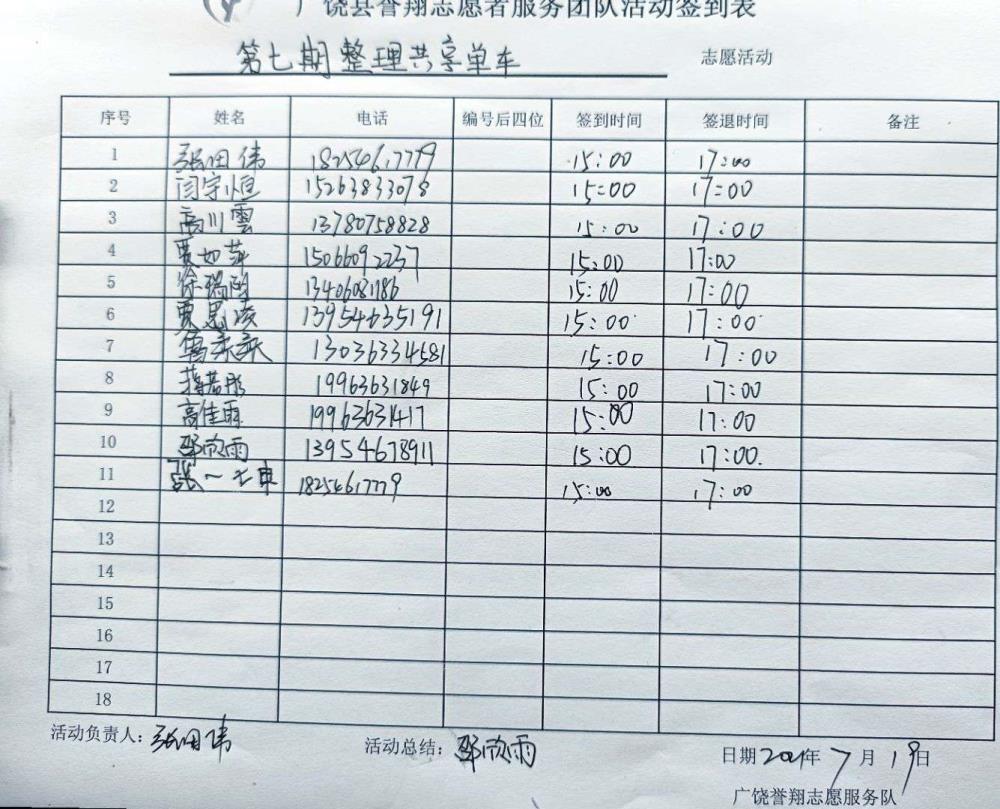 广饶县誉翔志愿者服务团队活动签到表
第七期整理共享单车 志愿活动
序号 姓名 电话 编号后四位 签到时间 签退时间 备注
1 张田伟 18254617779 15:00 17:00
2 闫宇恒 15263833078 15:00 17:00
3 高川雲 13780758828 15:00 17:00
4 贾如萍 15066092237 15:00 17:00
5 徐瑞阳 15:00 17:00
6 贾思凌 13954635191 15:00 17:00
7 13036334581 15:00 17:00
8 蒋若彤 19963631849 15:00 17:00
9 高佳霖 19963631417 15:00 17:00
10 邵欣雨 13954678911 15:00 17:00.
11 张一 18254617779 15:00 17:00
12
13
14
15
16
17
18
活动负责人:张田伟 活动总结:邵欣雨 日期2021年7月19日
广饶誉翔志愿服务队